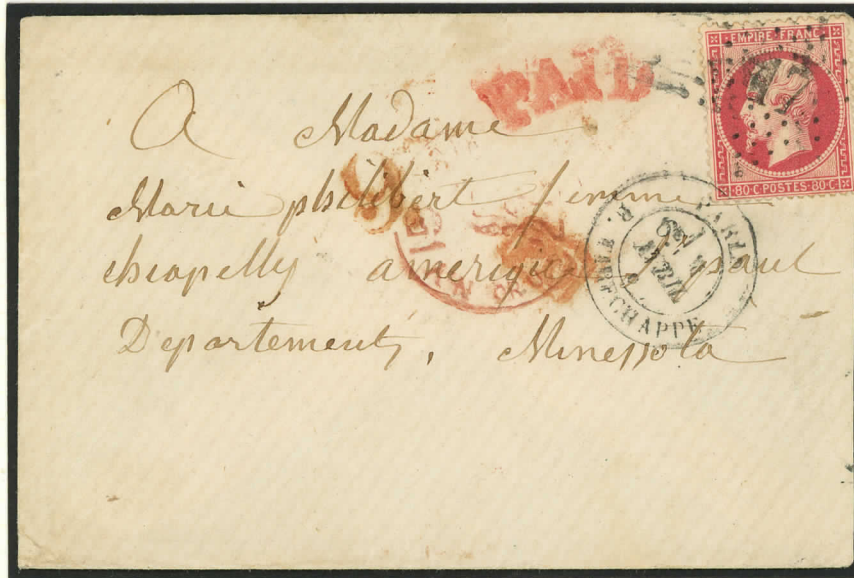 PAID
EMPIRE FRANC
17
80·C·POSTES·80·C
A Madame
Marie philibert femme
chapelly amerique St paul
Departement, Minessota
3
PARIS